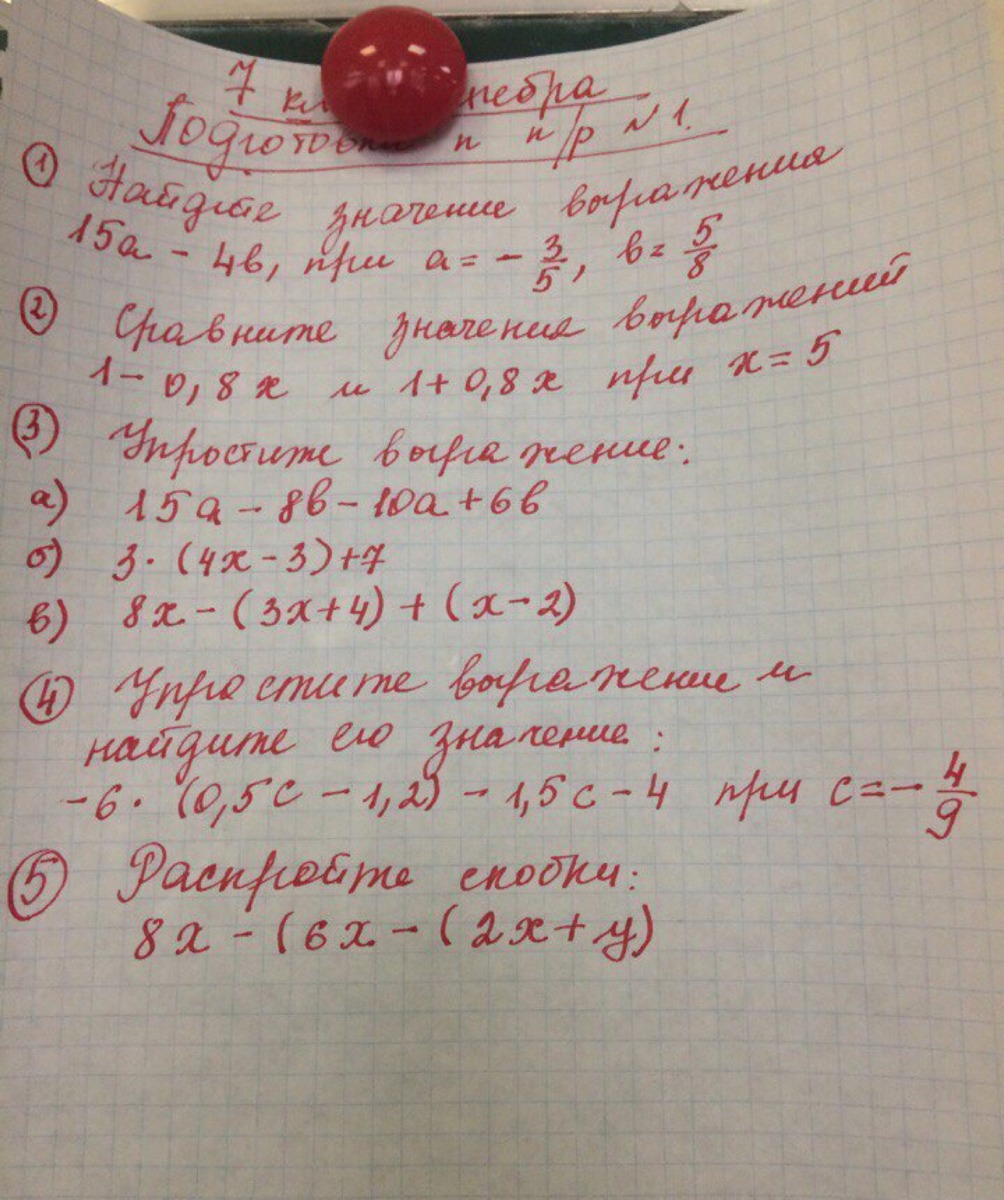 7 кл
Подготовка к к/р №1.
① Найдите значение выражения
15a - 4b, при a = - 3/5, b = 5/8
② Сравните значения выражений
1 - 0,8x и 1 + 0,8x при x = 5
③ Упростите выражение:
а) 15a - 8b - 10a + 6b
б) 3 · (4x - 3) + 7
в) 8x - (3x + 4) + (x - 2)
④ Упростите выражение и
найдите его значение:
-6 · (0,5c - 1,2) - 1,5c - 4 при c = - 4/9
⑤ Раскройте скобки:
8x - (6x - (2x + y)